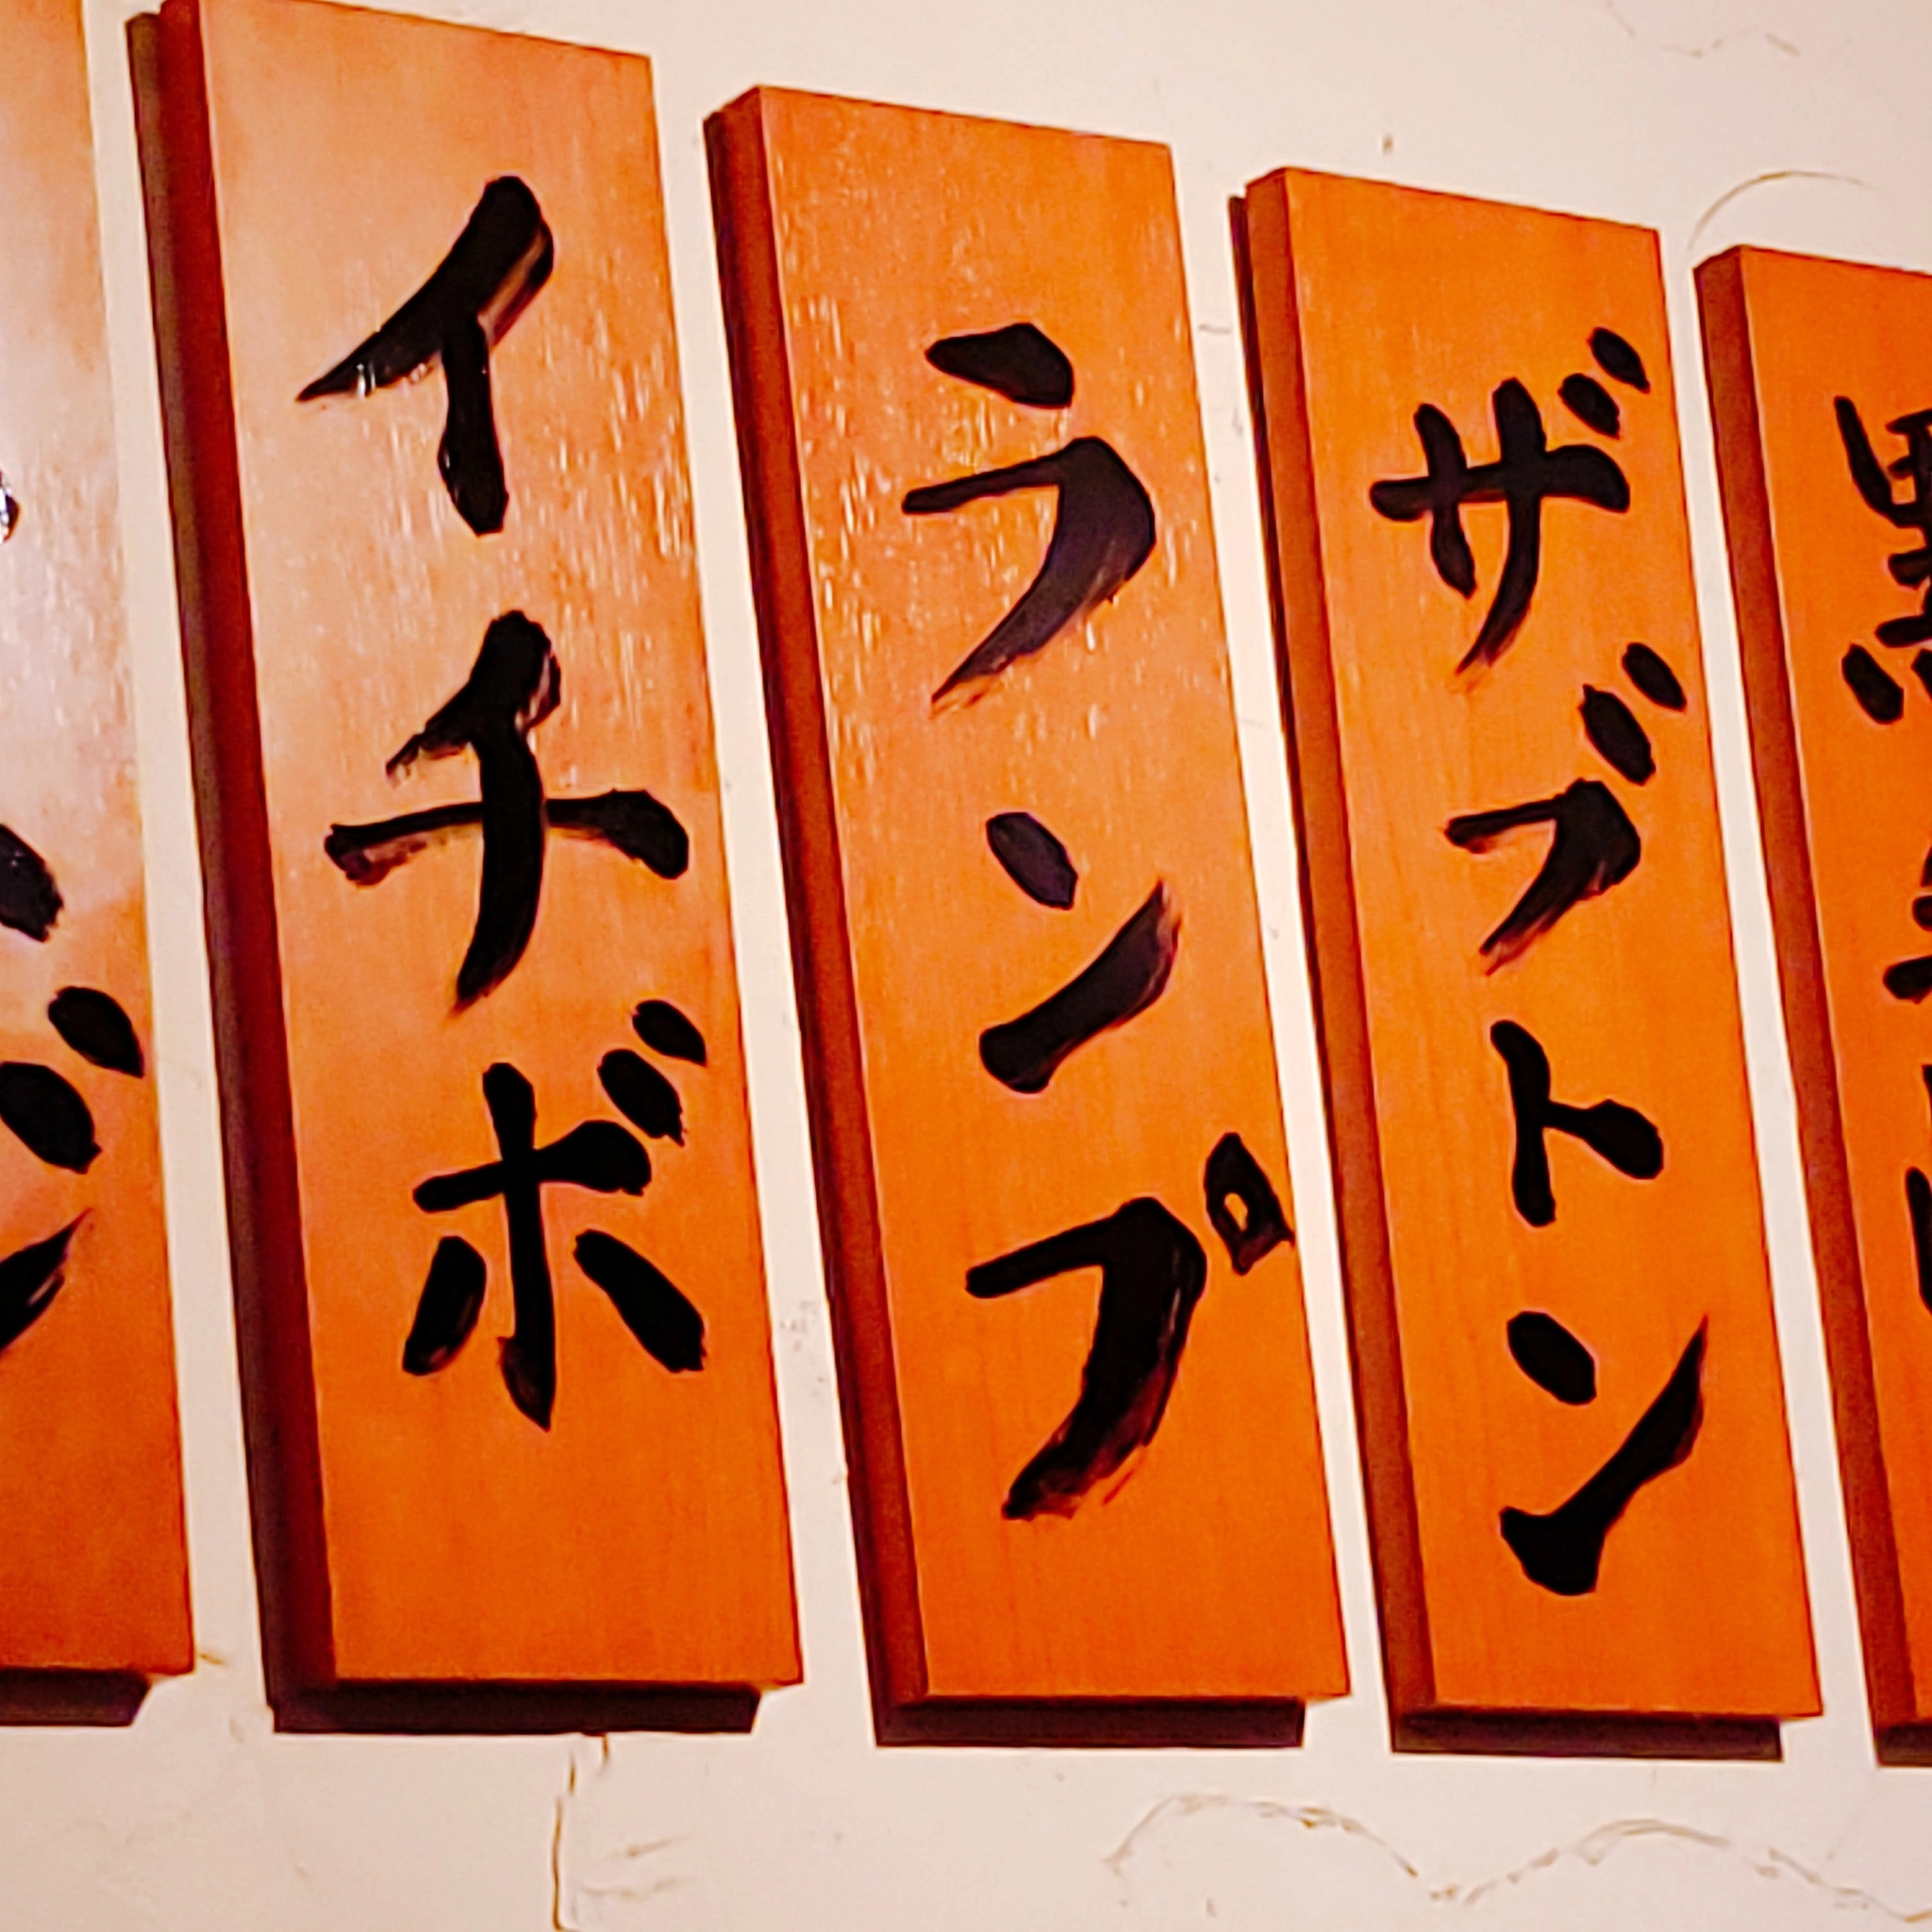 ザブトン
ランプ
イチボ